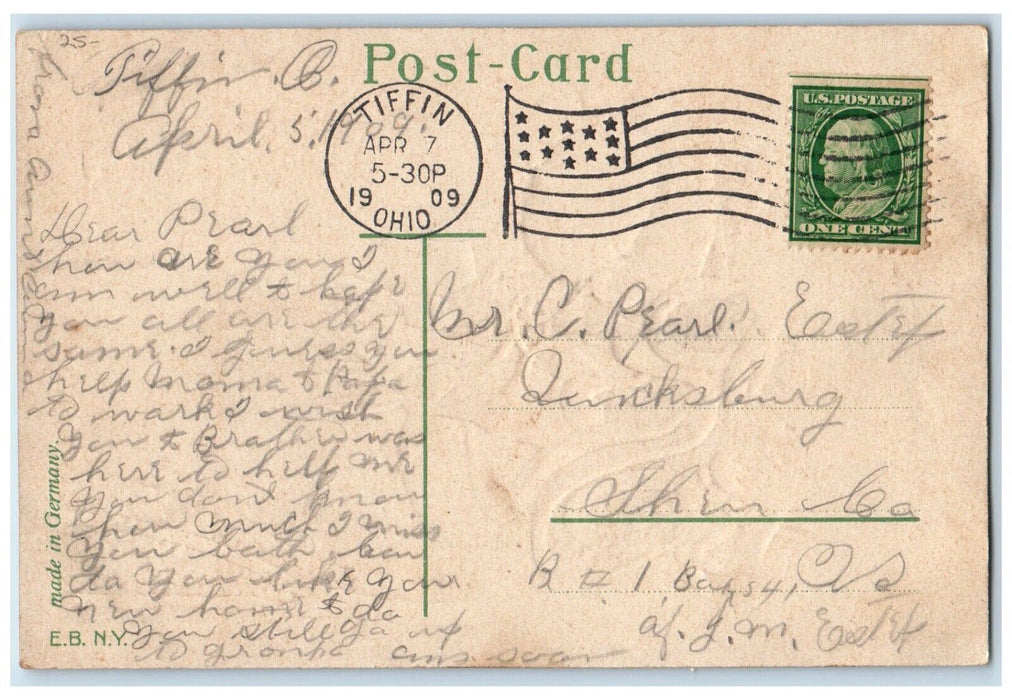 25-
Tiffin. O.
April. 5. 1909.
Post-Card
TIFFIN
APR 7
5-30P
19 09
OHIO
U.S. POSTAGE
ONE CENT
Dear Pearl
how are you I
am well & hope
you all are the
same. I guess you
help Moma & Papa
to work I wish
you & Brother was
here to help me
you dont know
how much I miss
you both how
do you like your
new home & do
you still go up
to Granpa ans. soon
from Aunt
made in Germany.
E.B. N.Y.
Mr. C. Pearl. Estep
Quicksburg
Shen Co
R # 1, Box 54, Va
of. J. M. Estep